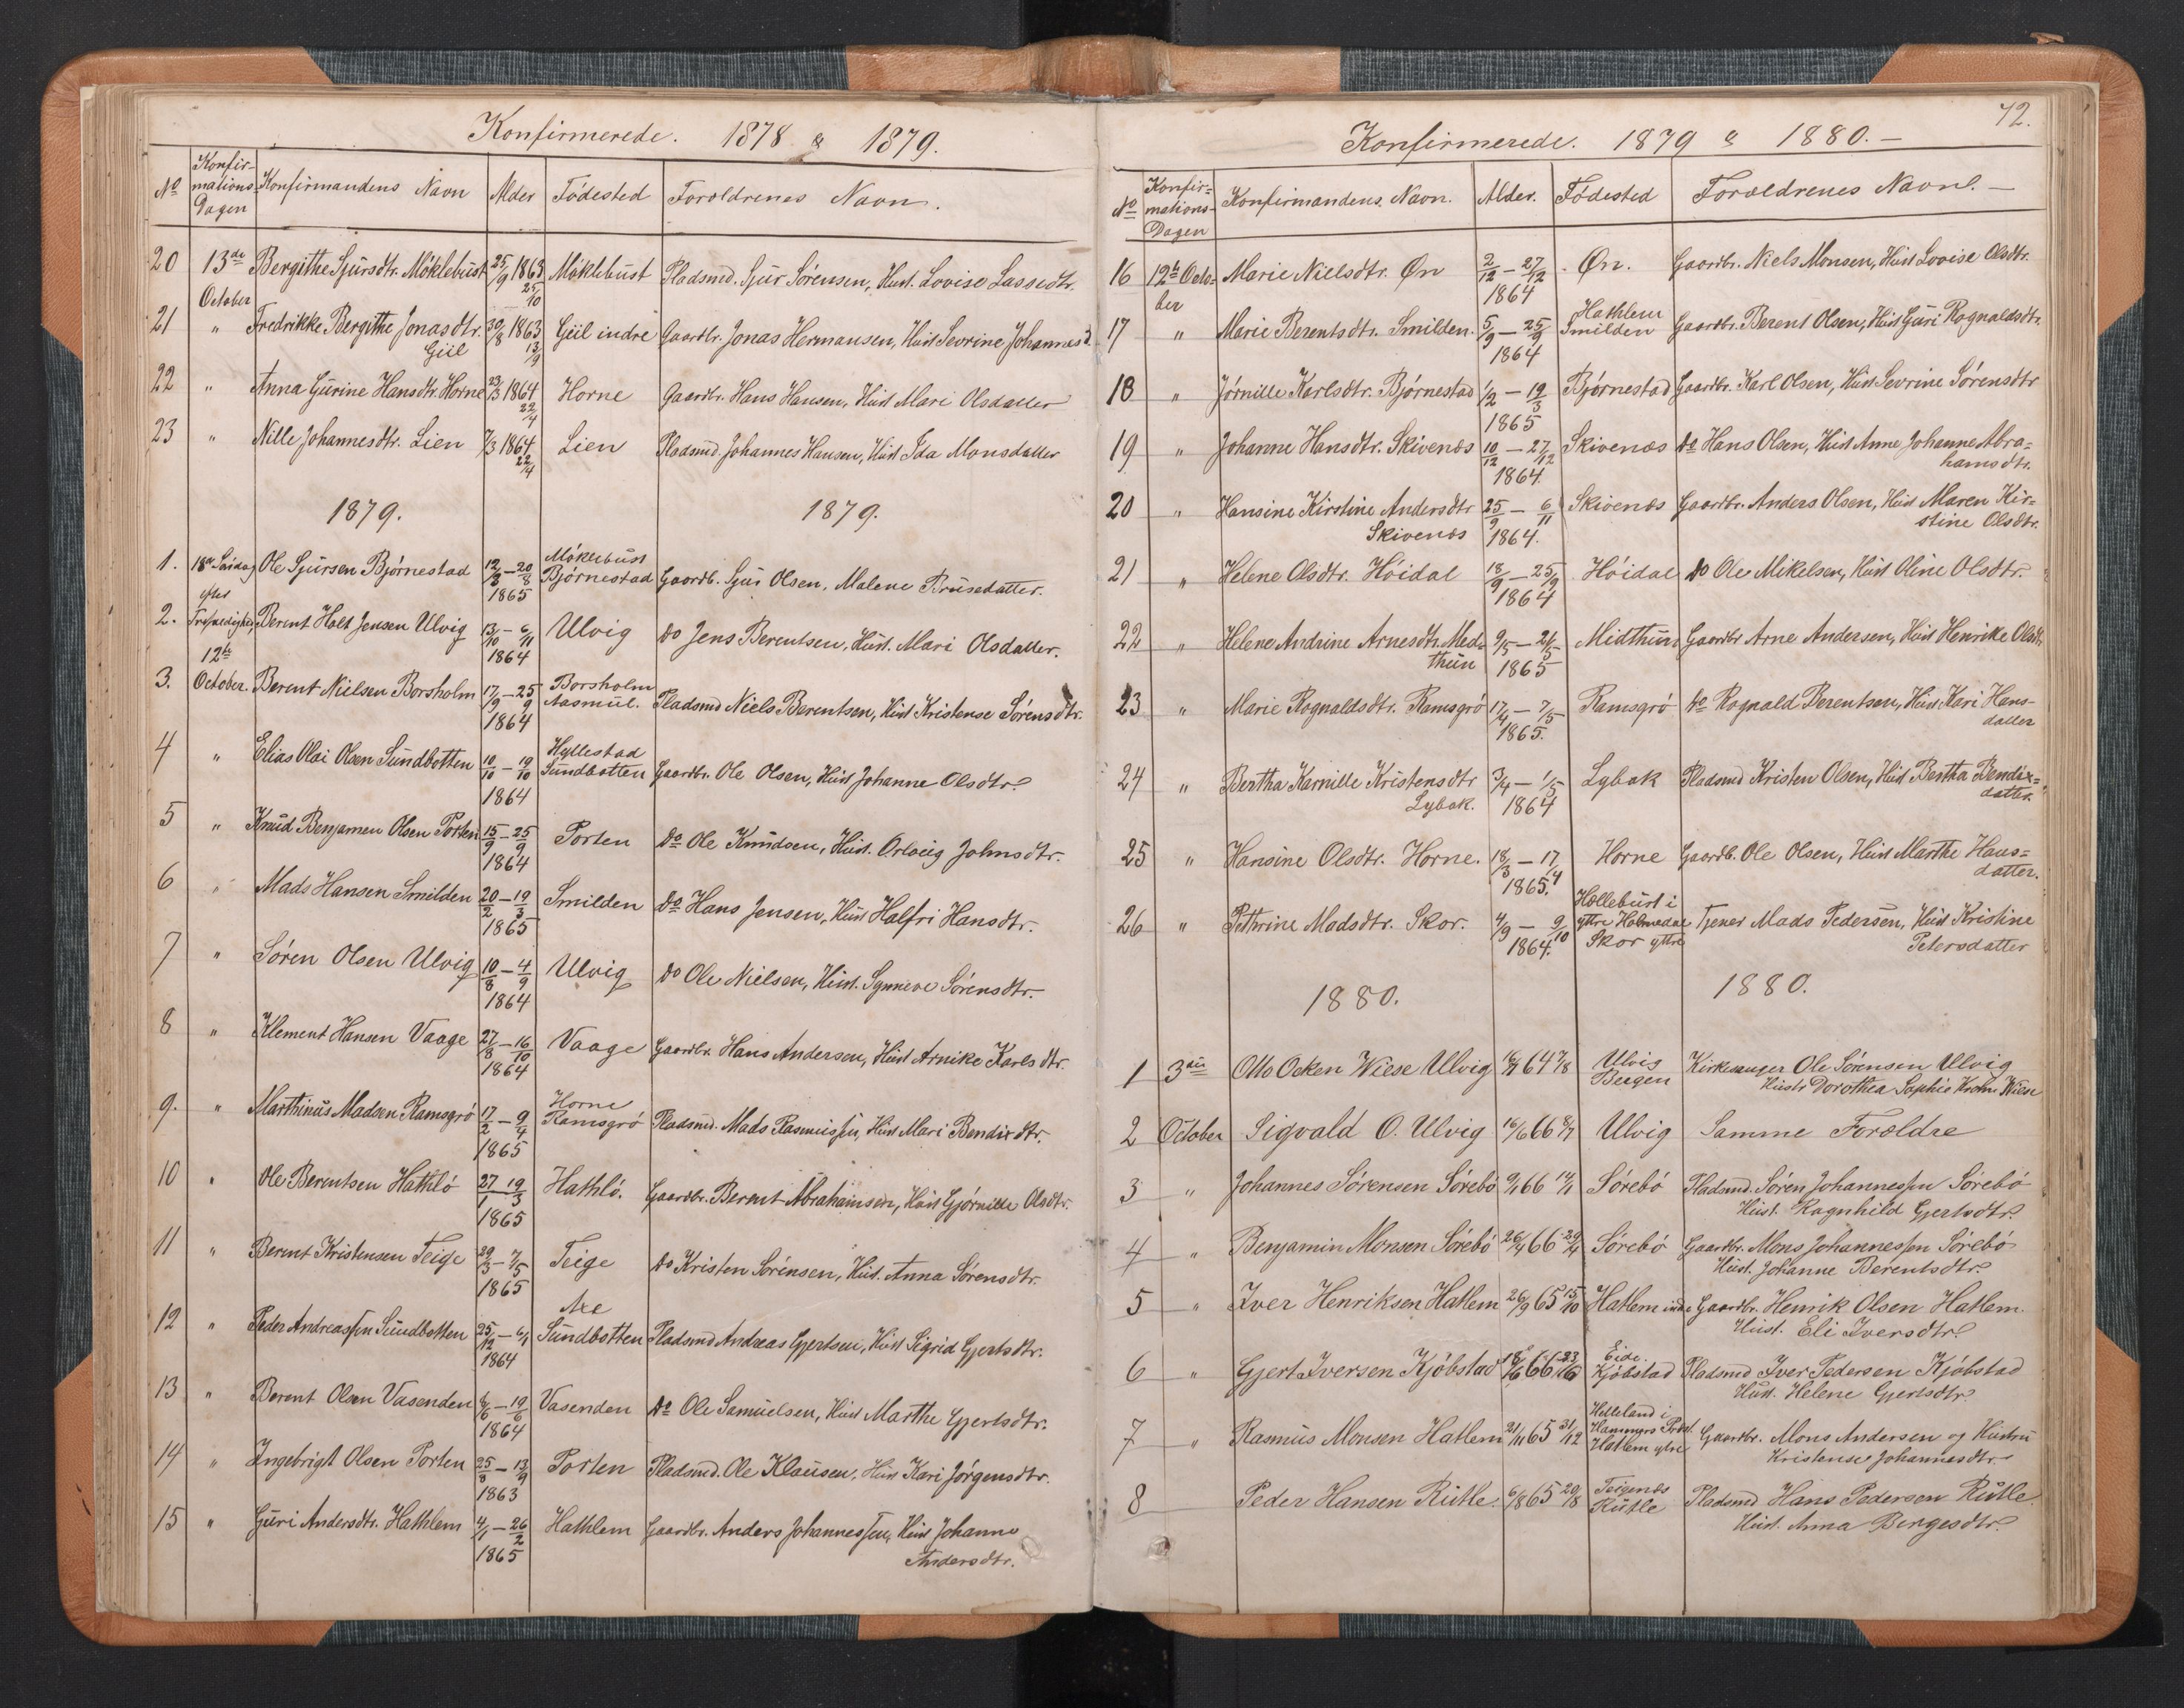 Konfirmerede. 1878 & 1879.
No Konfirmations-Dagen Konfirmandens Navn Alder Födested Forældrenes Navn.
20 13de October Bergithe Sjursdtr. Möklebust 25/9 1863 25/10 Möklebust Pladsmd. Sjur Sörensen, Hust. Lovise Lassedtr.
21 " Fredrikke Bergithe Jonasdtr. Giil 30/8 1863 13/9 Giil indre Gaardbr. Jonas Hermansen, Hust Sevrine Johannesd.
22 " Anna Gurine Hansdtr. Horne 23/3 1864 22/4 Horne Gaardbr. Hans Hansen, Hust Mari Olsdatter
23 " Nille Johannesdtr. Lien 7/3 1864 22/4 Lien Pladsmd. Johannes Hansen, Hust Ida Monsdatter
1879. 1879.
1. 18de Söndag efter Trefoldighed, 12te October. Ole Sjursen Bjørnestad 12/3 – 20/8 1865 Möklebust Bjórnestad Gaardb. Sjur Olsen, Malene Brusedatter.
2. Berent Holt Jensen Ulvig 13/10 – 6/11 1864 Ulvig Do Jens Berentsen, Hust. Mari Olsdatter.
3. Berent Nielsen Borsholm 17/9 – 25/9 1864 Borsholm Aasmul. Pladsmd Niels Berentsen, Hust Kristense Sörensdtr.
4 " Elias Olai Olsen Sundbotten 10/10 – 19/10 1864 Hyllestad Sundbotten Gaardbr. Ole Olsen, Hust Johanne Olsdtr.
5 " Knud Benjamen Olsen Porten 15/9 – 25/9 1864 Porten Do Ole Knudsen, Hust. Orloug Johnsdtr.
6 " Mads Hansen Smilden 20/2 – 19/3 1865 Smilden Do Hans Jensen, Hust Halfri Hansdtr.
7 " Sören Olsen Ulvig 10/8 – 4/9 1864 Ulvig Do Ole Nielsen, Hust. Synneve Sörensdtr.
8 " Klement Hansen Vaage 27/8 – 16/10 1864 Vaage Gaardbr. Hans Andersen, Hust Arnike Karlsdtr.
9. " Marthinus Madsen Ramsgró 17/2 – 9/4 1865 Horne Ramsgró Pladsmd. Mads Rasmussen, Hust Mari Bendixdtr.
10 " Ole Berentsen Hathló 27/1 19/3 1865 Hathló. Gaardbr. Berent Abrahamsen, Hust Gjörnille Olsdtr.
11 " Berent Kristensen Teige 29/3 – 7/5 1865 Teige Do Kristen Sörensen, Hust. Anna Sörensdtr.
12 " Peder Andreassen Sundbotten 25/12 – 6/1 1864 Axe Sundbotten Pladsmd Andreas Gjertsen, Hust Sigrid Gjertsdtr.
13 " Berent Olsen Vasenden 6/6 – 19/6 1864 Vasenden Do Ole Samuelsen, Hust Marthe Gjertsdtr.
14 " Ingebrigt Olsen Porten 25/8 – 13/9 1863 Porten Pladsmd. Ole Klausen, Hust Kari Jörgensdtr.
15 " Guri Andersdtr. Hathlem 4/1 – 26/2 1865 Hathlem Gaardbr. Anders Johannessen, Hust Johanne
Andersdtr.
72.
Konfirmerede. 1879 & 1880.–
No Konfirmations-Dagen Konfirmandens Navn. Alder. Födested Forældrenes Navne.–
16 12te October Marie Nielsdtr. Øn 2/12 – 27/12 1864 Øn. Gaardbr. Niels Monsen, Hust Lovise Olsdtr.
17 " Marie Berentsdtr. Smilden 5/9 – 25/9 1864 Hathlem Smilden Gaardbr. Berent Olsen, Hust Guri Rognaldsdtr.
18 " Jörnille Karlsdtr. Björnestad 1/2 – 19/3 1865 Björnestad Gaardbr. Karl Olsen, Hust Sevrine Sörensdtr
19 " Johanne Hansdtr. Skivenæs 10/12 – 27/12 1864. Skivenæs Do Hans Olsen, Hust Anne Johanne Abra=
hamsdtr.
20 " Hansine Kirstine Andersdtr Skivenæs 25/9 – 6/11 1864. Skivenæs Gaardbr. Anders Olsen, Hust Maren Kir=
stine Olsdtr.
21 " Helene Olsdtr. Höidal 18/9 – 25/9 1864 Höidal Do Ole Mikelsen, Hust Oline Olsdtr.
22 " Helene Andrine Arnesdtr. Med=thun 9/5 – 21/5 1865 Midthun Gaardbr Arne Andersen, Hust Henrike Olsdtr.
23 " Marie Rognaldsdtr. Ramsgró 17/4 – 7/5 1865. Ramsgró Do Rognald Berentsen, Hust. Kari Hans-
datter
24 " Bertha Karnille Kristensdtr Lybak. 3/4 – 1/5 1864 Lybak Pladsmd Kristen Olsen, Hust Bertha Bendix=
datter.
25 " Hansine Olsdtr. Horne. 18/3 – 17/4 1865. Horne Gaardb. Ole Olsen, Hust Marthe Hans=
datter.
26 " Pethrine Madsdtr. Skor. 4/9 – 9/10 1864. Hellebust i yttre Holmedal Skor yttre Tjener Mads Pedersen, Hust Kristine
Petersdatter
1880. 1880.
1 3die October Otto Ocken Wiese Ulvig 64 7/8 Ulvig Bergen Kirkesanger Ole Sörensen Ulvig
Hustr Dorothea Sophie Krohn Wiese
2 Sigvald O. Ulvig 16/6 66 8/7 Ulvig Samme Forældre
3 " Johannes Sörensen Sörebö 9/1 66 14/1 Sörebö Pladsmd. Sören Johannessen Sörebö
Hust. Ragnhild Gjertsdtr.
4 " Benjamin Monsen Sörebö 26/4 66 29/4 Sörebö Gaardbr. Mons Johannessen Sörebö
Hust. Johanne Berentsdtr.
5 " Iver Henriksen Hatlem 26/9 65 15/10 Hatlem indre Gaardbr. Henrik Olsen Hatlem
Hust. Eli Iversdtr.
6 " Gjert Iversen Kjöbstad 66 Eide. Kjöbstad Pladsmd Iver Pedersen Kjöbstad
Hust. Helene Gjertsdtr.
7 " Rasmus Monsen Hatlem 21/11 65 31/12 Helleland i Hammers Hatlem ytre Gaardbr. Mons Andersen og Hustru
Kristense Johannesdtr.
8 Peder Hansen Rutle. 6/8 65 20/8 Teigenæs Rutle Pladsmd Hans Pedersen Rutle.
Hust. Anna Bergesdtr.